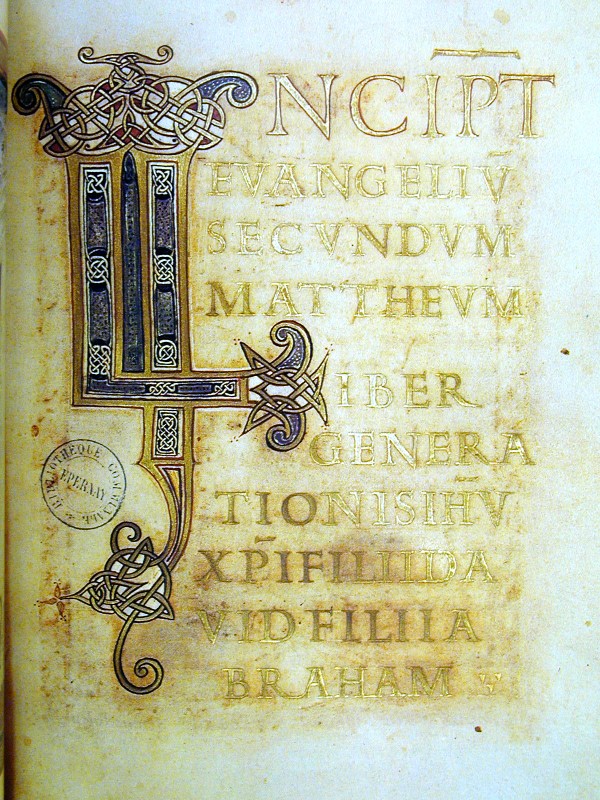 INCIP̄T
EVANGELIV̄
SECVNDVM
MATTHEVM
LIBER
GENERA
TIONISIH̄V
XP̄IFILIIDA
VIDFILIIA
BRAHAM
BIBLIOTHEQUE COMMUNALE
EPERNAY